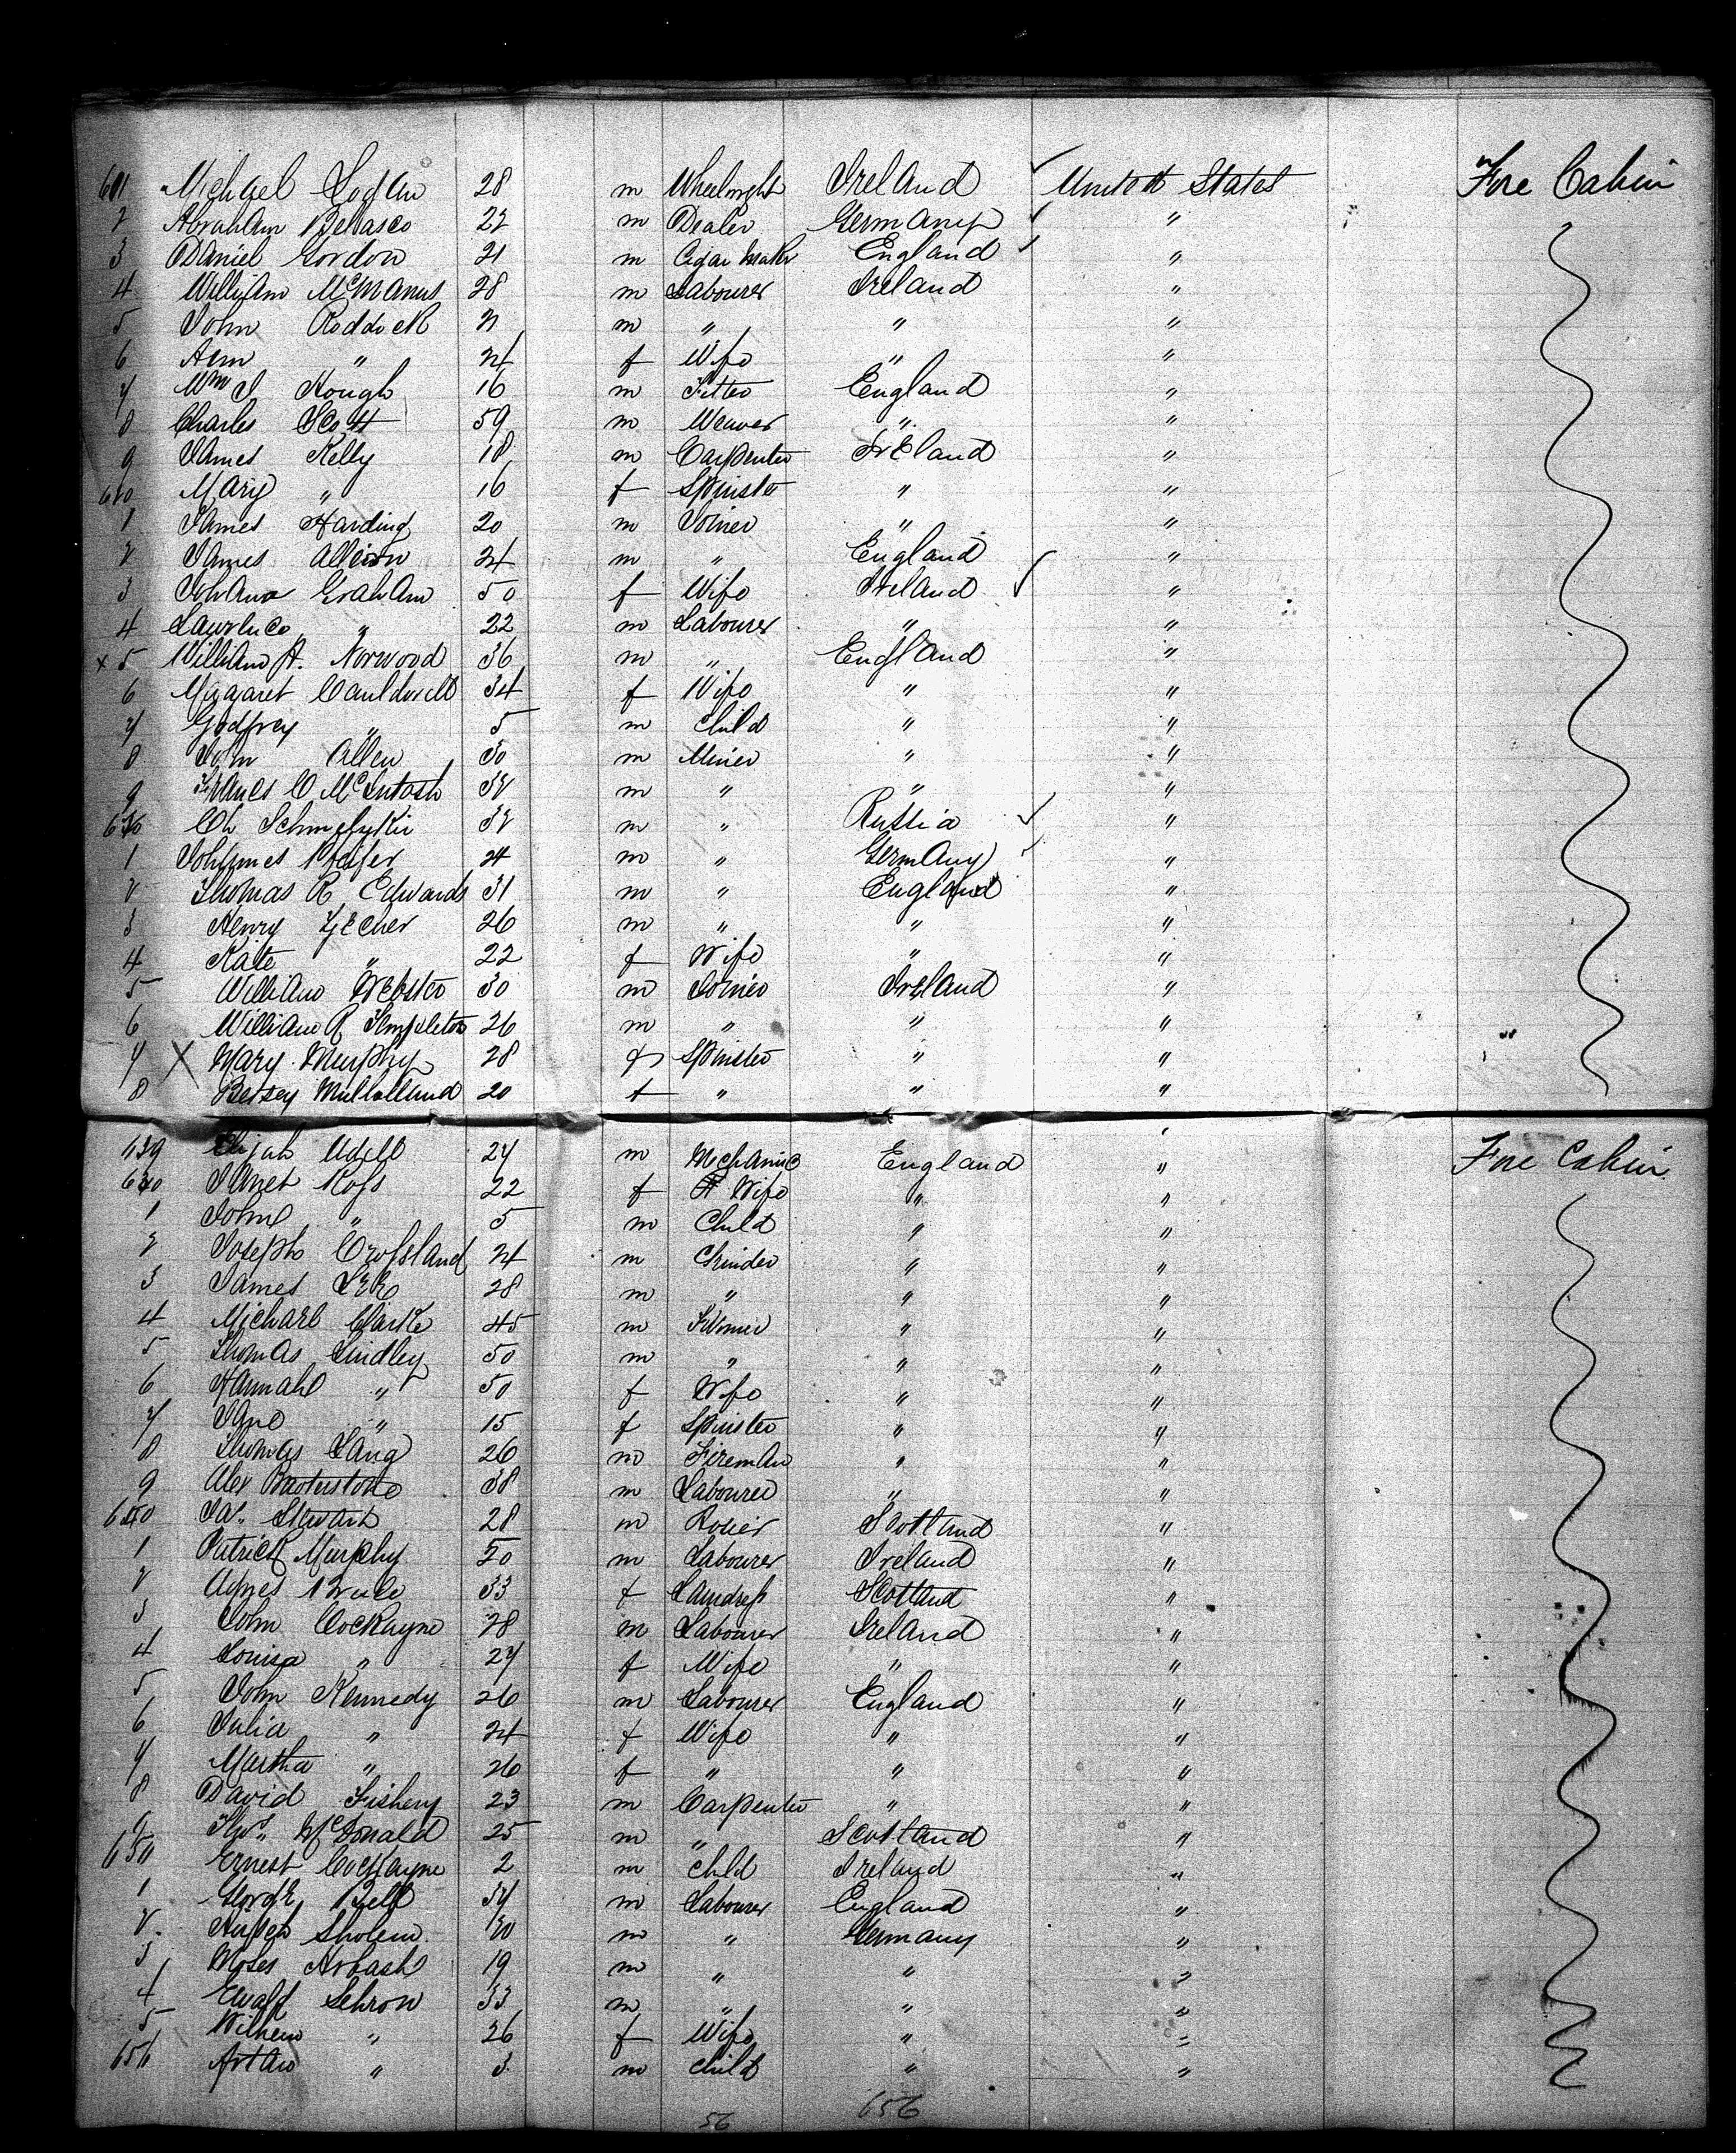 601 Michael Logan 28 m Wheelwright Ireland ✓ United States Fore Cabin
2 Abraham Belasco 22 m Dealer Germany ✓ "
3 Daniel Gordon 21 m Cigar Maker England ✓ "
4 William McManus 28 m Labourer Ireland "
5 John Roddick 21 m " " "
6 Ann " 24 f Wife " "
7 Wm J Hough 16 m Fitter England "
8 Charles Scott 59 m Weaver " "
9 James Kelly 18 m Carpenter Ireland "
610 Mary " 16 f Spinster " "
1 James Harding 20 m Joiner " "
2 James Allison 24 m " England "
3 Johana Graham 50 f Wife Ireland ✓ "
4 Lawrence " 22 m Labourer " "
x 5 William A. Norwood 36 m " England "
6 Margaret Cauldwell 34 f Wife " "
7 Godfrey " 5 m Child " "
8 John Allen 30 m Miner " "
9 C McIntosh 32 m " " "
Ch 32 m " Russia ✓ "
1 Johannes 24 m " Germany ✓ "
2 Thomas R Edwards 31 m " England "
3 Henry 26 m " " "
4 Kate " 22 f Wife " "
5 William Webster 30 m Joiner Ireland "
6 William R Templeton 26 m " " "
7 X Mary Murphy 28 f Spinster " "
8 Betsey Mulholland 20 f " " "
639 Elijah Udell 27 m Mechanic England " Fore Cabin
Janet Rofs 22 f Wife " "
1 John " 5 m Child " "
2 Joseph Crofsland 24 m Grinder " "
3 James Lee 28 m " " "
4 Michael Clarke 45 m " "
5 Thomas Lindley 50 m " " "
6 Hannah " 50 f Wife " "
7 Jane " 15 f Spinster " "
8 Thomas Lang 26 m Fireman " "
9 Alex 38 m Labourer " "
640 Ja. Stewart 28 m Scotland "
1 Patrick Murphy 50 m Labourer Ireland "
2 Agnes 33 f Laundrefs Scotland "
3 John Cockayne 28 m Labourer Ireland "
4 Louisa " 27 f Wife " "
5 John Kennedy 26 m Labourer England "
6 Julia " 24 f Wife " "
7 Martha " 26 f " " "
8 David 23 m Carpenter " "
9 Thos. McDonald 25 m " Scotland "
650 Ernest Cockayne 2 m Child Ireland "
1 George Bell 34 m Labourer England "
2 Sholem m " Germany "
3 Moses Arbash 19 m " " "
4 Ewald Schron 33 m " " "
5 Wilhem " 26 f Wife " "
656 " 3 m Child " "
56 656